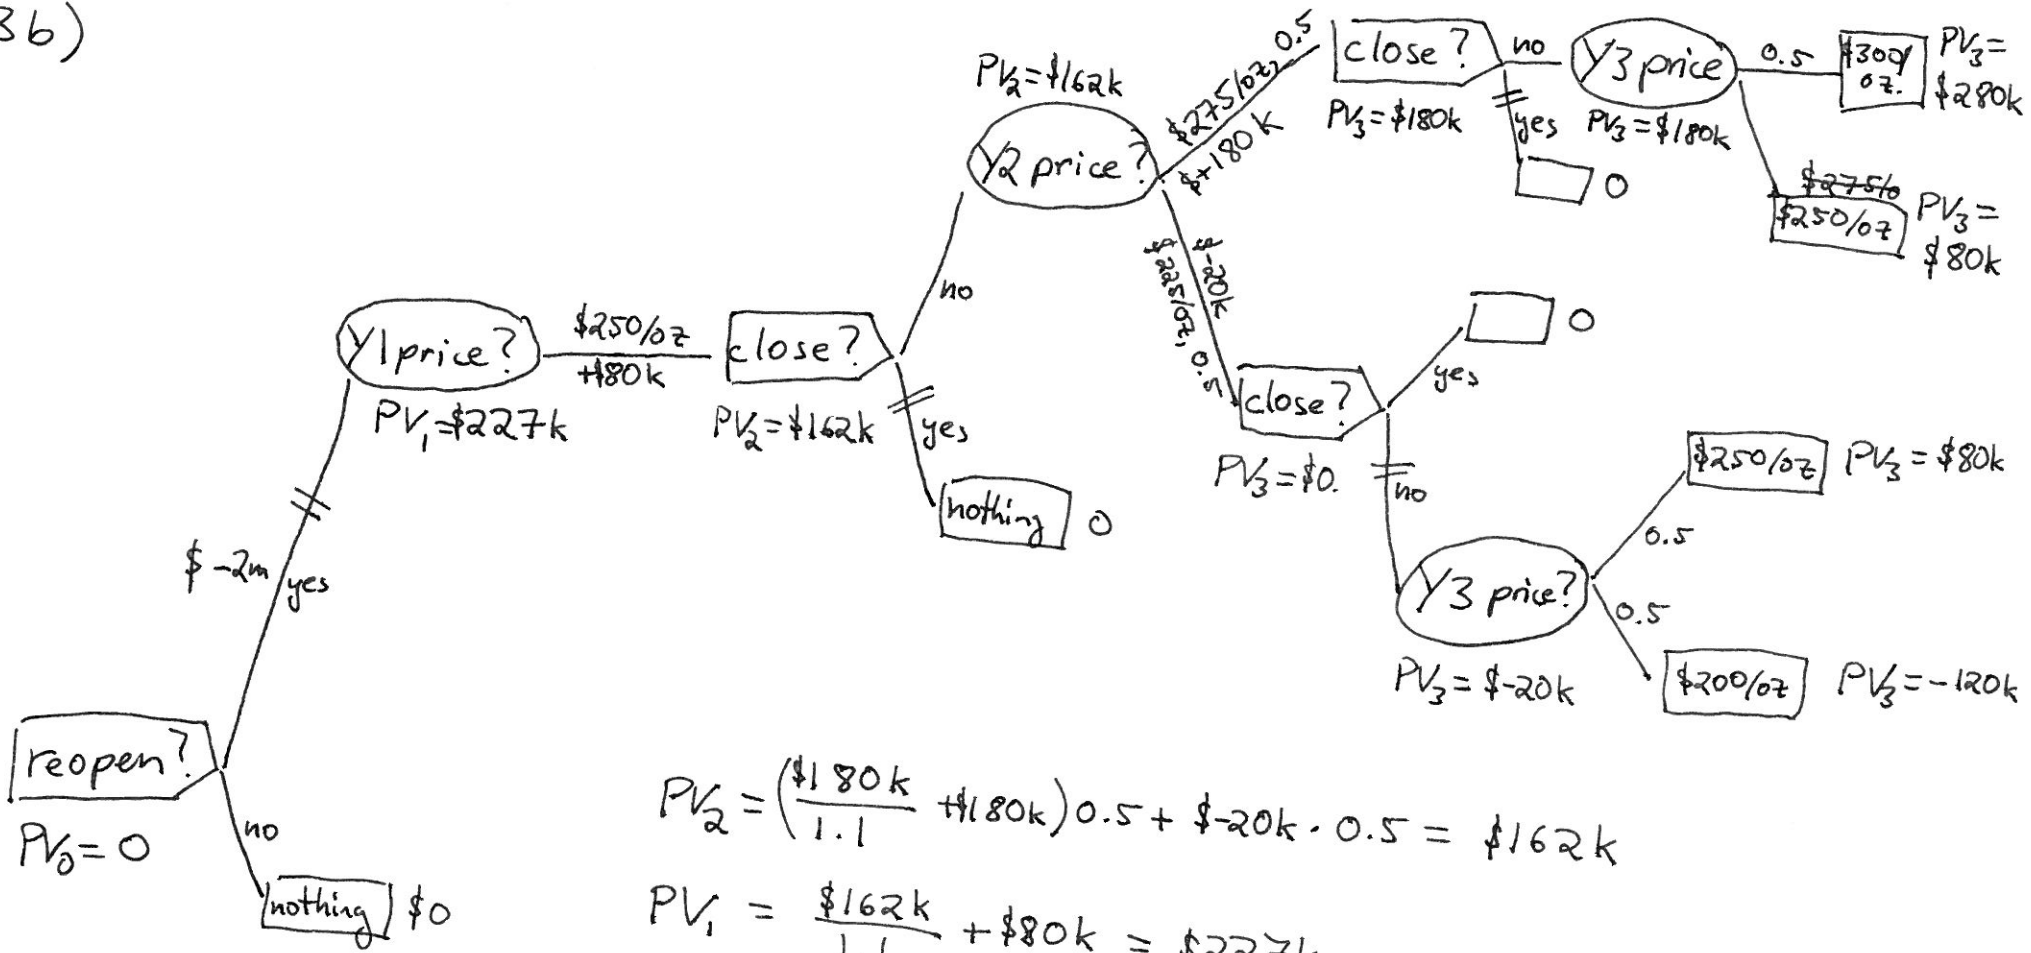 3b)
reopen?
PV₀ = 0
no
nothing
$0
$ -2m
yes
Y1 price?
PV₁ = $227k
$250/oz
+$80k
close?
PV₂ = $162k
yes
nothing
0
no
PV₂ = $162k
Y2 price?
$275/oz, 0.5
$+180k
close?
PV₃ = $180k
no
yes
0
Y3 price
PV₃ = $180k
0.5
$300/
oz.
PV₃ =
$280k
$275/o
$250/oz
PV₃ =
$80k
$-20k
$225/oz, 0.5
close?
PV₃ = $0.
yes
0
no
Y3 price?
PV₃ = $-20k
0.5
$250/oz
PV₃ = $80k
0.5
$200/oz
PV₃ = -120k
PV₂ = ($180k/1.1 + $180k) 0.5 + $-20k · 0.5 = $162k
PV₁ = $162k/1.1 + $80k = $227k